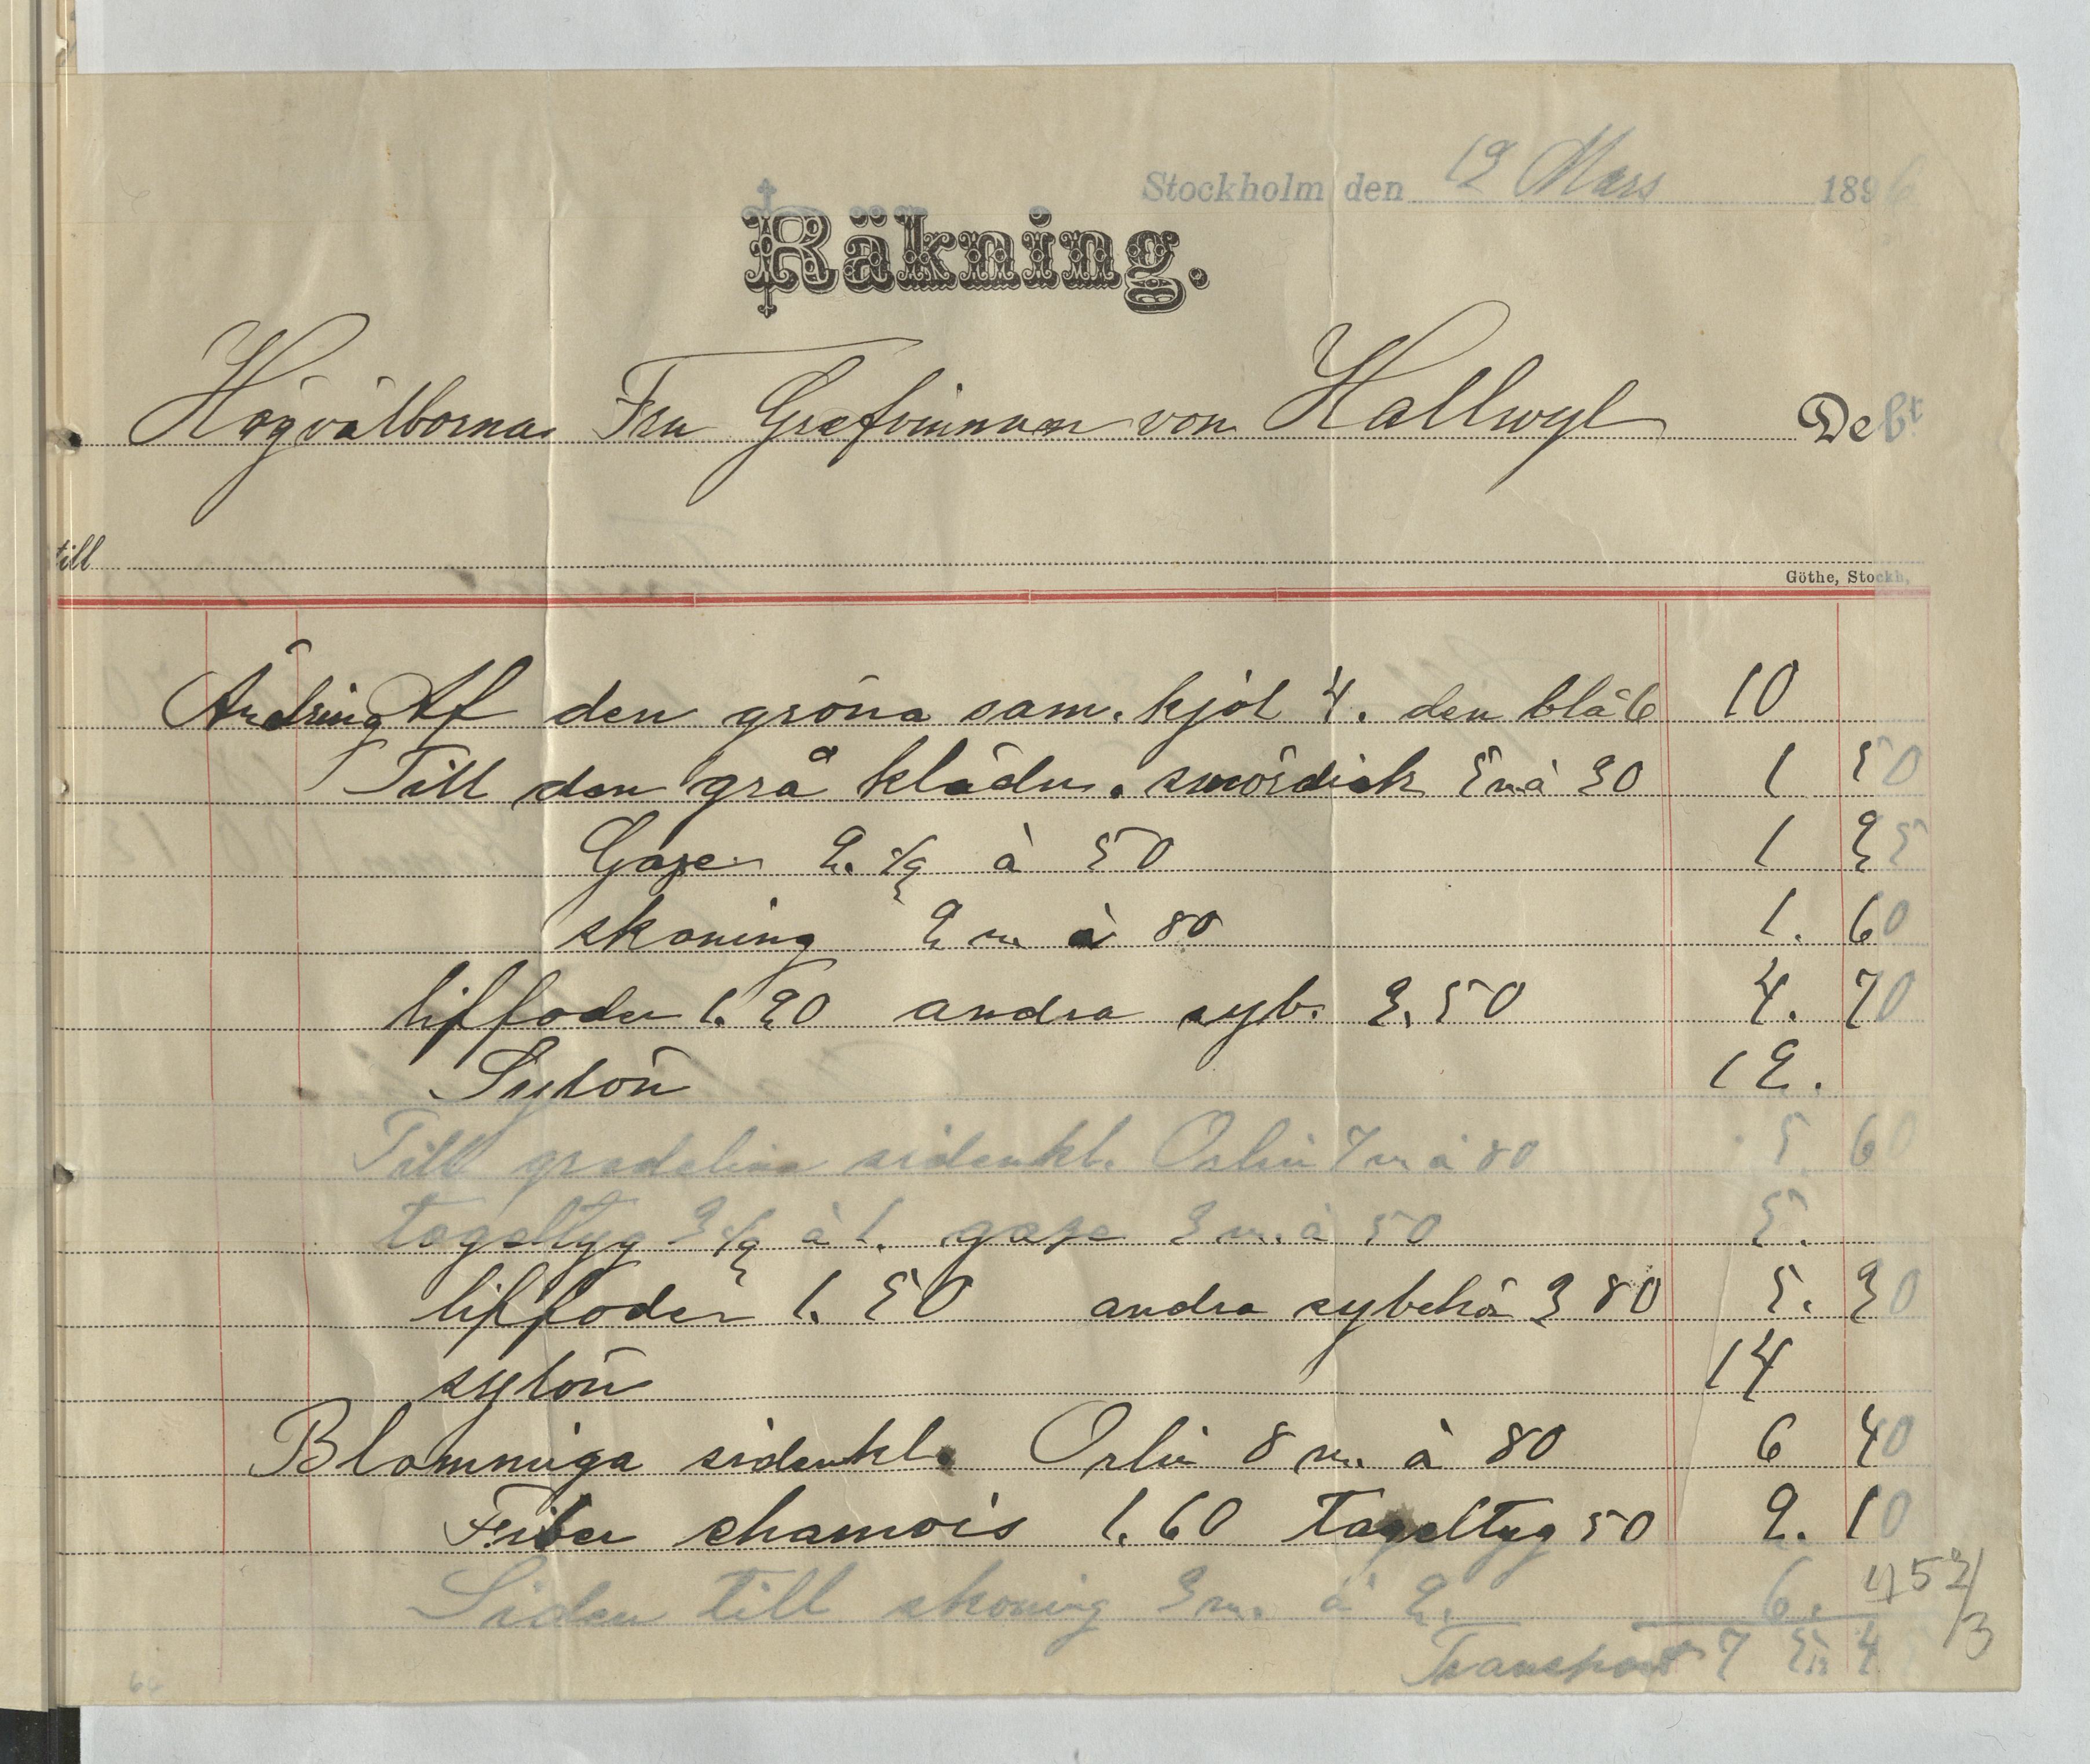 Stockholm den 12 Mars 1896
Räkning.
Högvälborna Fru Grefvinnan von Hallwyl Debt
till
Göthe, Stockh,
Ändring Af den gröna sam. kjol 4. den blå 6 10
Till den grå klädn. smördisk 5 m à 30 1 50
Gaze 2. 1/2 à 50 1 25
skoning 2 m à 80 1. 60
liffoder 1. 20 andra syb. 3. 50 4. 70
Sylön 12.
Till gredelina sidenkl. Orlin 7 m à 80 5. 60
tageltyg 3 1/2 à 1. gaze 3 m. à 50 5.
liffoder 1. 50 andra sybehö 3 80 5. 30
sylön 14
Blommiga sidenkl. Orlin 8 m. à 80 6 40
Friber chamois 1. 60 Tageltyg 50 2. 10
Siden till skoning 3 m. à 2. 6.
Transport 7 5 4